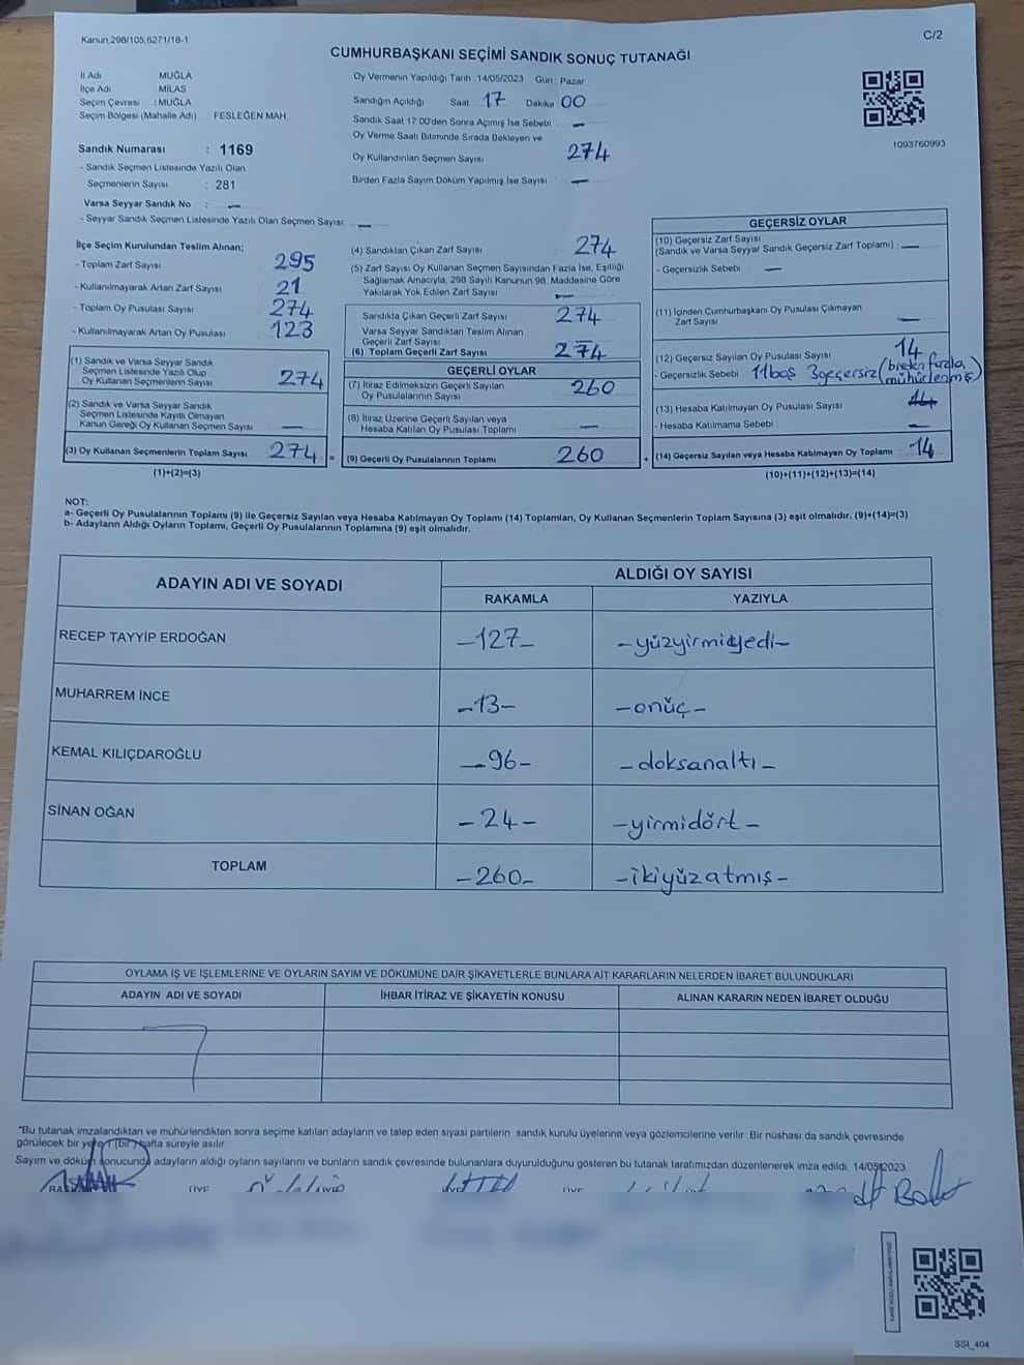 Kanun 298/105,6271/18-1
C/2
CUMHURBAŞKANI SEÇİMİ SANDIK SONUÇ TUTANAĞI
İl Adı MUĞLA
İlçe Adı MİLAS
Seçim Çevresi : MUĞLA
Seçim Bölgesi (Mahalle Adı) FESLEĞEN MAH.
Sandık Numarası : 1169
- Sandık Seçmen Listesinde Yazılı Olan
Seçmenlerin Sayısı : 281
Varsa Seyyar Sandık No : —
- Seyyar Sandık Seçmen Listesinde Yazılı Olan Seçmen Sayısı: —
Oy Vermenin Yapıldığı Tarih : 14/05/2023 Gün : Pazar
Sandığın Açıldığı Saat 17 Dakika 00
Sandık Saat 17:00'den Sonra Açılmış İse Sebebi —
Oy Verme Saati Bitiminde Sırada Bekleyen ve
Oy Kullandırılan Seçmen Sayısı 274
Birden Fazla Sayım Döküm Yapılmış İse Sayısı —
1093760993
İlçe Seçim Kurulundan Teslim Alınan;
- Toplam Zarf Sayısı 295
- Kullanılmayarak Artan Zarf Sayısı 21
- Toplam Oy Pusulası Sayısı 274
- Kullanılmayarak Artan Oy Pusulası 123
(1) Sandık ve Varsa Seyyar Sandık
Seçmen Listesinde Yazılı Olup
Oy Kullanan Seçmenlerin Sayısı 274
(2) Sandık ve Varsa Seyyar Sandık
Seçmen Listesinde Kayıtlı Olmayan
Kanun Gereği Oy Kullanan Seçmen Sayısı —
(3) Oy Kullanan Seçmenlerin Toplam Sayısı 274 =
(1)+(2)=(3)
(4) Sandıktan Çıkan Zarf Sayısı 274
(5) Zarf Sayısı Oy Kullanan Seçmen Sayısından Fazla İse, Eşitliği
Sağlamak Amacıyla, 298 Sayılı Kanunun 98. Maddesine Göre
Yakılarak Yok Edilen Zarf Sayısı —
Sandıkta Çıkan Geçerli Zarf Sayısı 274
Varsa Seyyar Sandıktan Teslim Alınan
Geçerli Zarf Sayısı —
(6) Toplam Geçerli Zarf Sayısı 274
GEÇERLİ OYLAR
(7) İtiraz Edilmeksizin Geçerli Sayılan
Oy Pusulalarının Sayısı 260
(8) İtiraz Üzerine Geçerli Sayılan veya
Hesaba Katılan Oy Pusulası Toplamı —
(9) Geçerli Oy Pusulalarının Toplamı 260 +
GEÇERSİZ OYLAR
(10) Geçersiz Zarf Sayısı
(Sandık ve Varsa Seyyar Sandık Geçersiz Zarf Toplamı) : —
- Geçersizlik Sebebi —
(11) İçinden Cumhurbaşkanı Oy Pusulası Çıkmayan
Zarf Sayısı —
(12) Geçersiz Sayılan Oy Pusulası Sayısı 14
- Geçersizlik Sebebi 11boş 3geçersiz (birden fazla
mühürlenmiş)
(13) Hesaba Katılmayan Oy Pusulası Sayısı
- Hesaba Katılmama Sebebi —
(14) Geçersiz Sayılan veya Hesaba Katılmayan Oy Toplamı 14
(10)+(11)+(12)+(13)=(14)
NOT:
a- Geçerli Oy Pusulalarının Toplamı (9) ile Geçersiz Sayılan veya Hesaba Katılmayan Oy Toplamı (14) Toplamları, Oy Kullanan Seçmenlerin Toplam Sayısına (3) eşit olmalıdır. (9)+(14)=(3)
b- Adayların Aldığı Oyların Toplamı, Geçerli Oy Pusulalarının Toplamına (9) eşit olmalıdır.
ADAYIN ADI VE SOYADI ALDIĞI OY SAYISI
RAKAMLA YAZIYLA
RECEP TAYYİP ERDOĞAN -127- -yüzyirmiyedi-
MUHARREM İNCE -13- -onüç-
KEMAL KILIÇDAROĞLU -96- -doksanaltı-
SİNAN OĞAN -24- -yirmidört-
TOPLAM -260- -ikiyüzatmış-
OYLAMA İŞ VE İŞLEMLERİNE VE OYLARIN SAYIM VE DÖKÜMÜNE DAİR ŞİKAYETLERLE BUNLARA AİT KARARLARIN NELERDEN İBARET BULUNDUKLARI
ADAYIN ADI VE SOYADI İHBAR İTİRAZ VE ŞİKAYETİN KONUSU ALINAN KARARIN NEDEN İBARET OLDUĞU
"Bu tutanak imzalandıktan ve mühürlendikten sonra seçime katılan adayların ve talep eden siyasi partilerin sandık kurulu üyelerine veya gözlemcilerine verilir. Bir nüshası da sandık çevresinde
görülecek bir yere 1 (bir) hafta süreyle asılır.
Sayım ve döküm sonucunda adayların aldığı oyların sayılarını ve bunların sandık çevresinde bulunanlara duyurulduğunu gösteren bu tutanak tarafımızdan düzenlenerek imza edildi. 14/05/2023
SSI_404